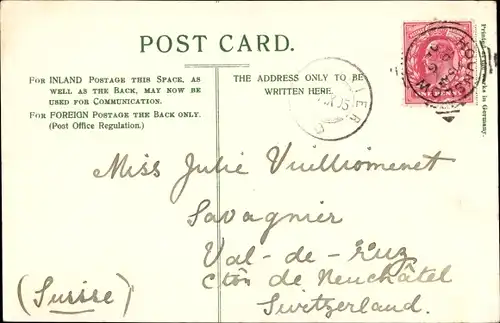 POST CARD.
FOR INLAND POSTAGE THIS SPACE, AS
WELL AS THE BACK, MAY NOW BE
USED FOR COMMUNICATION.
FOR FOREIGN POSTAGE THE BACK ONLY.
(Post Office Regulation.)
THE ADDRESS ONLY TO BE
WRITTEN HERE.
ONE PENNY
Printed at the works in Germany.
Miss Julie Vuilliomenet
Savagnier
Val-de-Ruz
Cton de Neuchâtel
(Suisse)
Switzerland.